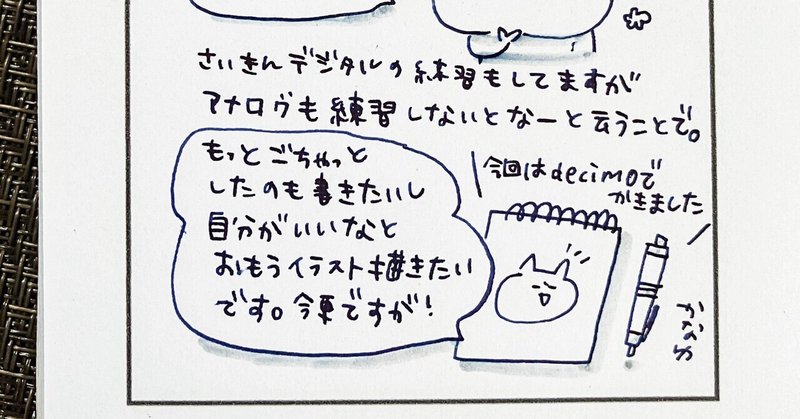 さいきんデジタルの練習もしてますが
アナログも練習しないとなーと云うことで。
もっとごちゃっと
したのも書きたいし
自分がいいなと
おもうイラスト描きたい
です。今更ですが!
今回はdecimoで
かきました
かなゆ